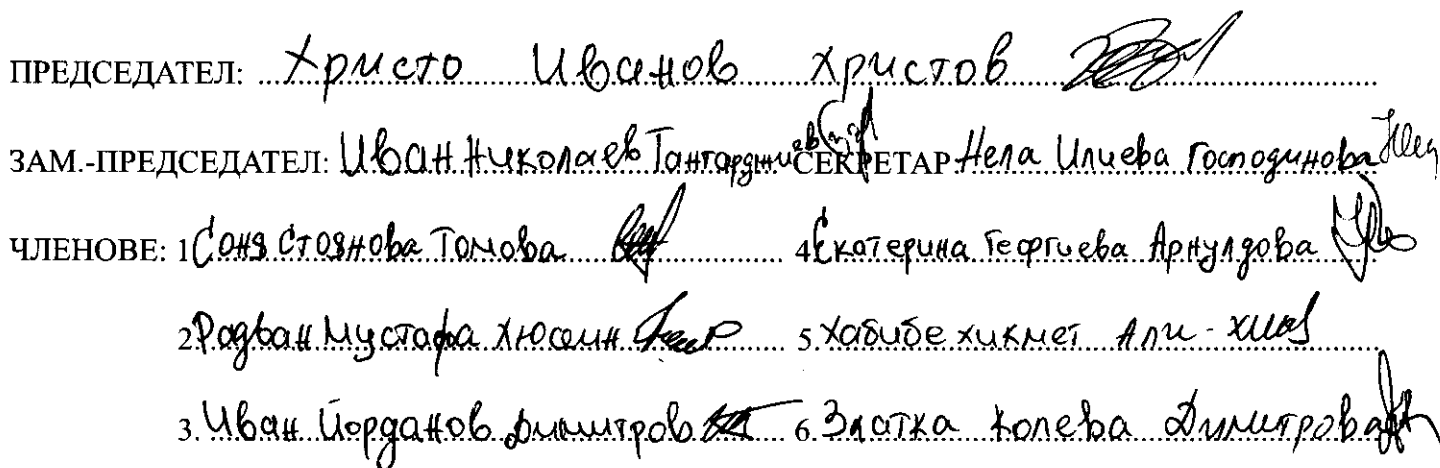 ПРЕДСЕДАТЕЛ: Христо Иванов Христов
ЗАМ.-ПРЕДСЕДАТЕЛ: Иван Николаев Тантарджиев СЕКРЕТАР Нела Илиева Господинова
ЧЛЕНОВЕ: 1 Соня Стоянова Томова 4 Екатерина Георгиева Арнулдова
2. Родван Мустафа Хюсеин 5. Хабибе Хикмет Али -
3. Иван Йорданов Димитров 6. Златка Колева Димитрова